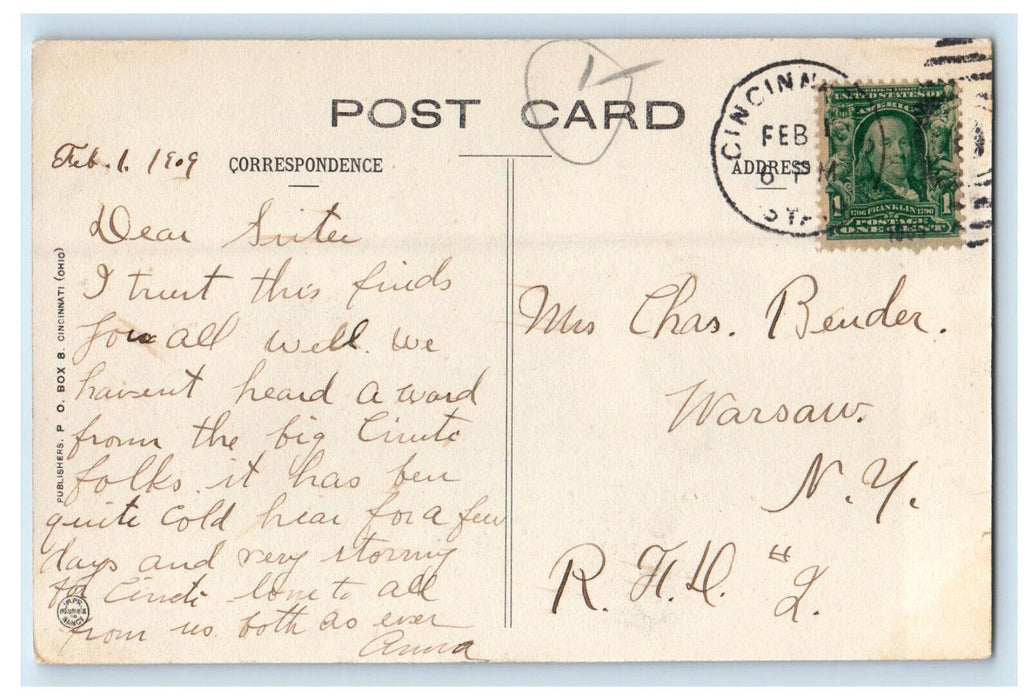 POST CARD
1
CINCINN
FEB
6 PM
STA
SERIES 1902
UNITED STATES OF
AMERICA
1 1706 FRANKLIN 1790 1
POSTAGE
ONE CENT
Feb. 1. 1909
CORRESPONDENCE
ADDRESS
Dear Sister
I trust this finds
you all well. we
haisent heard a word
from the big Cinti
folks. it has ben
quite cold hear for a few
days and very stormy
for Cinti love to all
from us both as ever
Anna
Mrs Chas. Bender.
Warsaw.
N. Y.
R. F. D. # 2.
PUBLISHERS. P O. BOX 8. CINCINNATI (OHIO)
IMPR.
RÉUNIES
NANCY